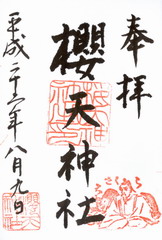 奉拝
櫻天神社
平成二十二年八月九日